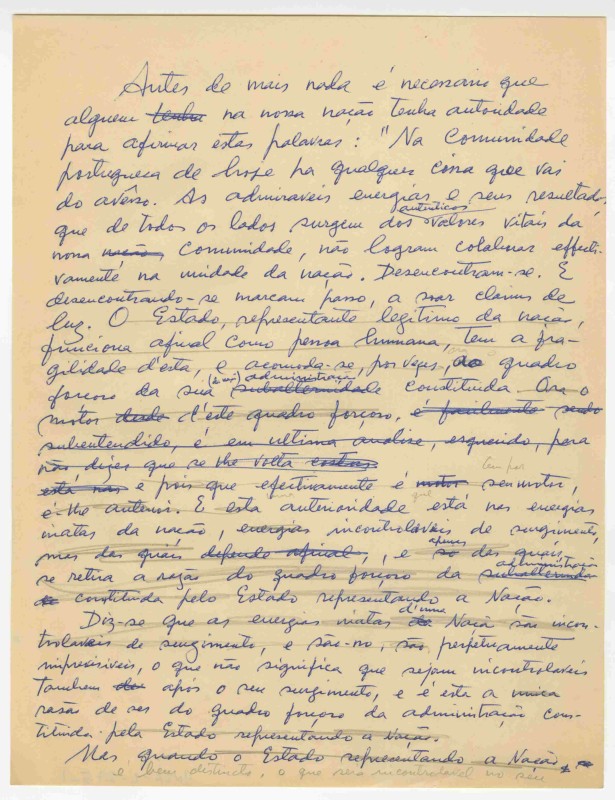 Antes de mais nada é necessario que
alguem tenha na nossa nação tenha autoridade
para afirmar estas palavras: "Na Comunidade
portuguesa de hoje ha qualquer coisa que vai
do avêsso. As admiraveis energias e seus resultados
autênticos
que de todos os lados surgem dos valores vitais da
nossa nação, Comunidade, não logram colaborar effecti-
vamente na unidade da nação. Desencontram-se. E
desencontrando-se marcam passo, a soar clarins de
luz. O Estado, representante legitimo da nação,
funciona afinal como pessoa humana, tem a fra-
gilidade d'esta, e acomoda-se, por vezes, ao quadro
administração
forçoso da sua subalternidade constituida. Ora o
motor dado d'êste quadro forçoso, é facilmente sendo
subentendido, e em ultima analise, esquecido, para
não dizer que se lhe volta costas
tem por
está nas e pois que efectivamente é motor seu motor,
é-lhe anterior. E esta anterioridade está nas energias
inatas da nação, energias incontrolaveis de surgimento,
apenas
mas das quais depende afinal, e só das quais
administração
se retira a razão do quadro forçoso da subalternidade
constituida pelo Estado representando a Nação.
d'uma
Diz-se que as energias inatas da Nação são incon-
trolaveis de surgimento, e são-no, são perfeitamente
imprevisiveis, o que não significa que sejam incontrolaveis
tambem do após o seu surgimento, e é esta a unica
razão de ser do quadro forçoso da administração cons-
tituida pelo Estado representando a Nação.
Mas quando o Estado representando a Nação
e bem distincto, o que será incontrolavel no seu